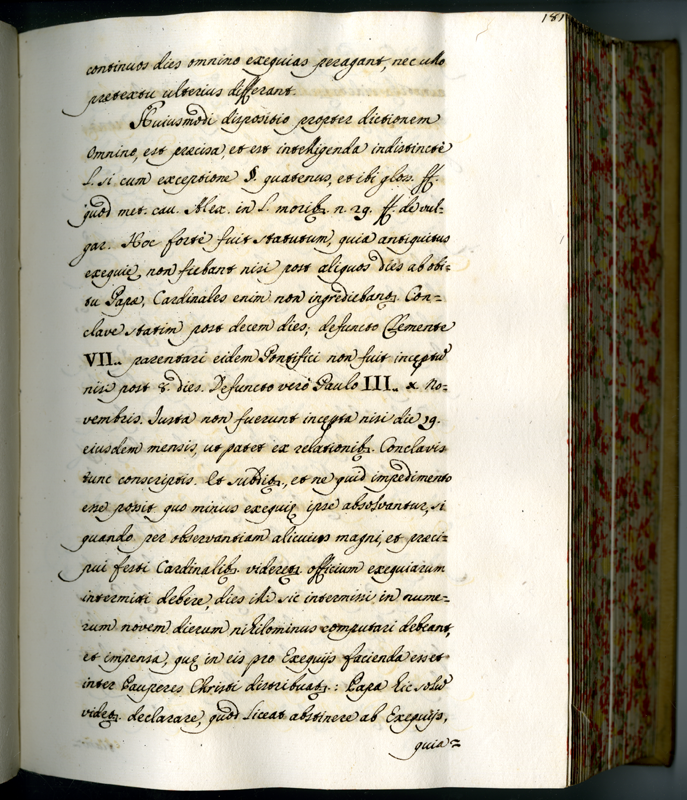 181
continuos dies omnino exequias peragant, nec ullo
pretextu ulterius differant.
Huiusmodi dispositio propter dictionem
omnino, est precisa, et est intelligenda indistinctè
l. si cum exceptione §. quatenus, et ibi glos. ff.
quod met. cau. Alex. in l. moribꝫ n. 29. ff. de vul-
gar. Hoc fortè fuit statutum, quia antiquitus
exequię non fiebant nisi post aliquos dies ab obi-
tu Papæ, Cardinales enim non ingrediebantꝫ Con-
clave statim post decem dies; defuncto Clemente
VII.. parentari eidem Pontifici non fuit inceptũ
nisi post 8. dies. Defuncto verò Paulo III.. x No-
vembris. Iusta non fuerunt incepta nisi die 19.
eiusdem mensis, ut patet ex relationibꝫ Conclavis
tunc conscriptis. Et subditꝫ, et ne quid impedimento
esse possit quo minus exequię ipse absolvantur, si
quando per observantiam alicuius magni, et preci-
pui festi Cardinalibꝫ videretꝫ officium exequiarum
intermitti debere, dies illi sic intermissi, in nume-
rum novem dierum nihilominus computari debeant,
et impensa, quę in eis pro Exequijs facienda esset
inter Pauperes Christi distribuatꝫ: Papa hic solũ
videtꝫ declarare, quòd liceat abstinere ab Exequijs,
quia-